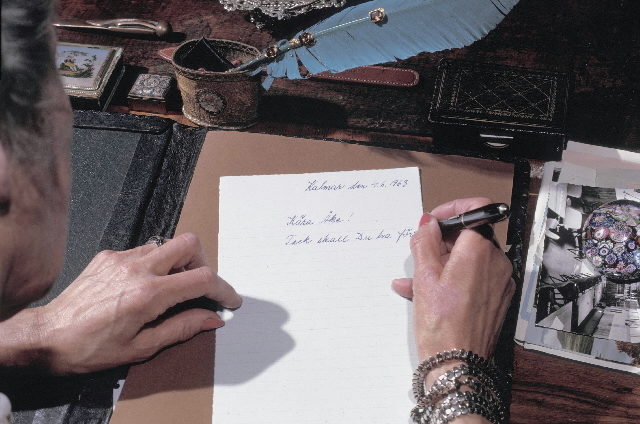 Kalmar den 5.6.1963
Kära Åke!
Tack skall Du ha för